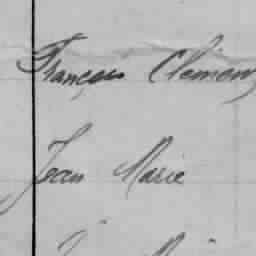 François Clément
Jean Marie